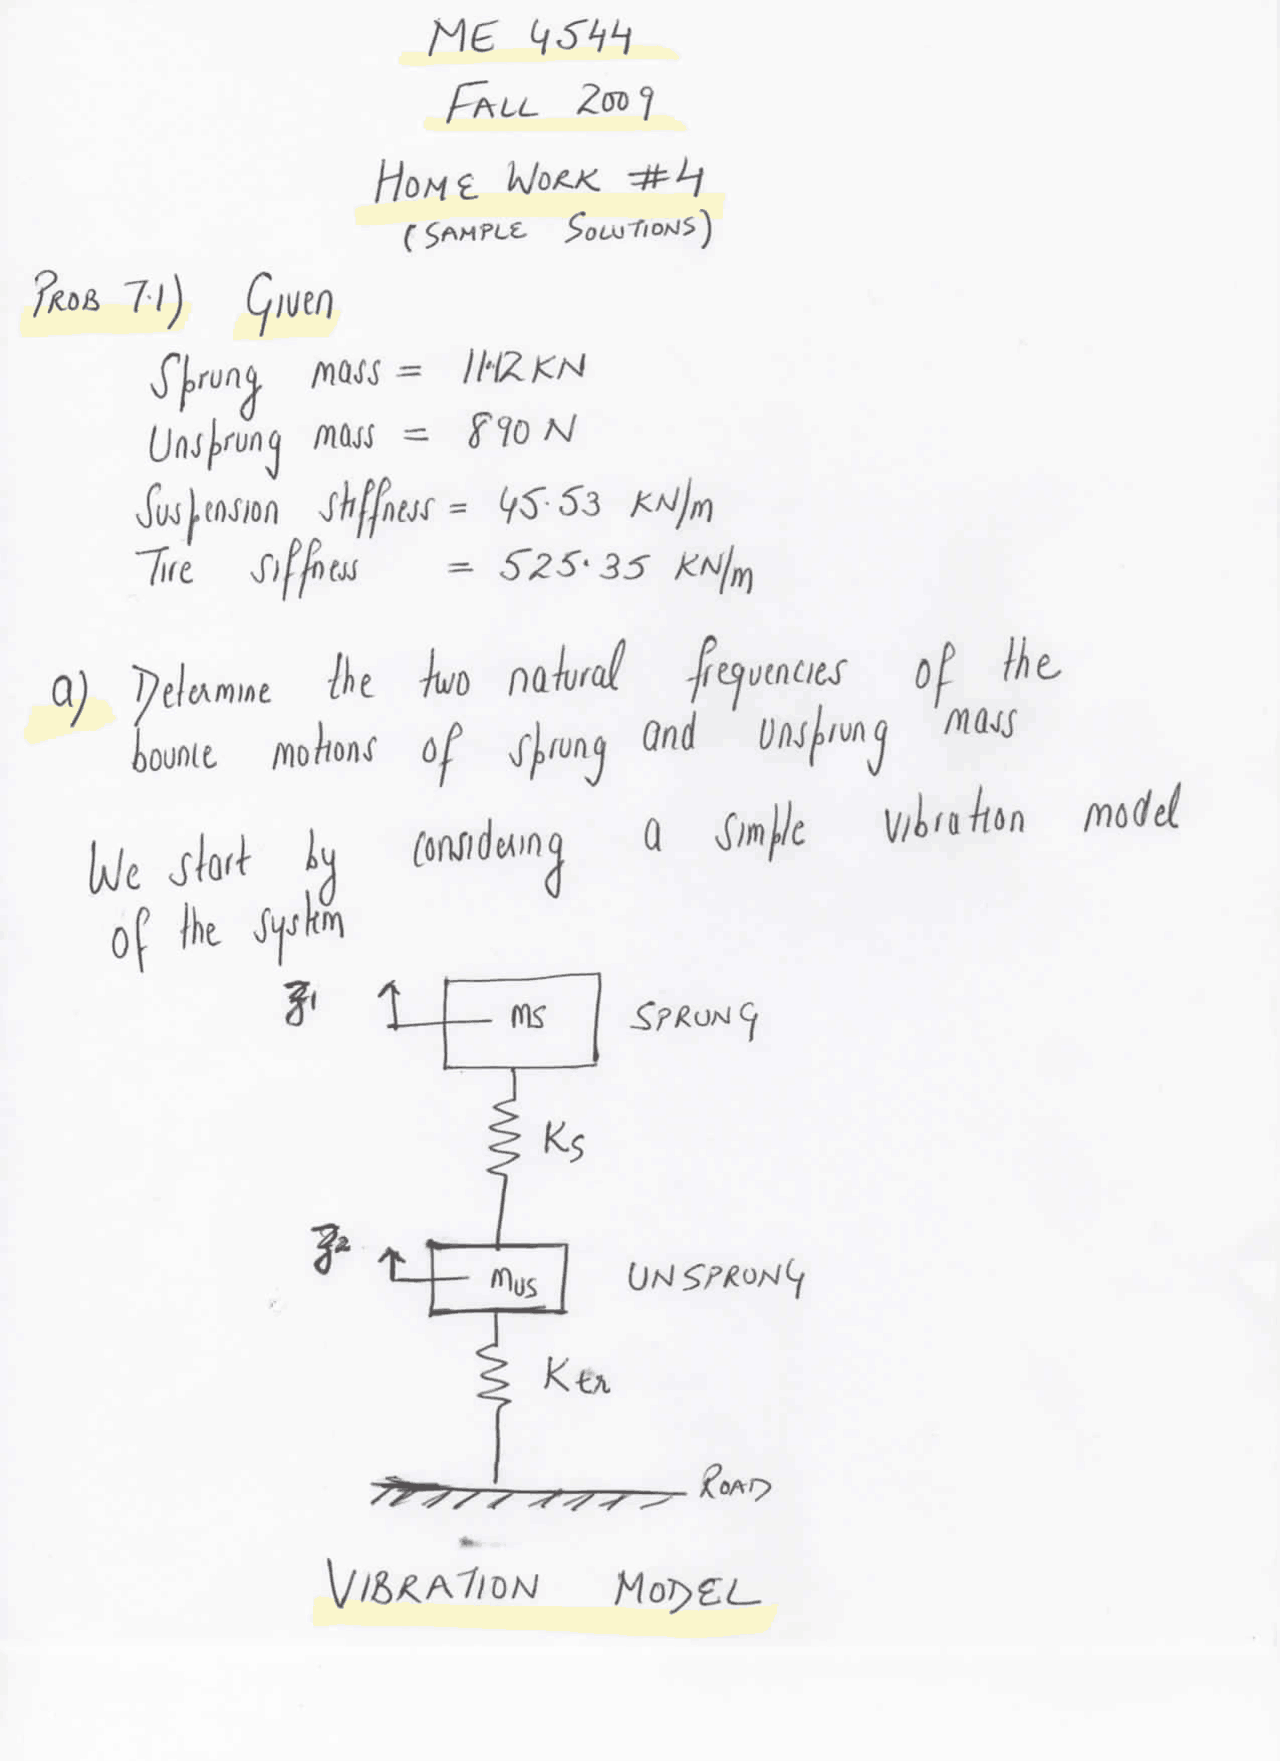 ME 4544
FALL 2009
HOME WORK #4
(SAMPLE SOLUTIONS)
PROB 7.1) Given
Sprung mass = 11.12 KN
Unsprung mass = 890 N
Suspension stiffness = 45.53 KN/m
Tire siffness = 525.35 KN/m
a) Determine the two natural frequencies of the
bounce motions of sprung and unsprung mass
We start by considering a simple vibration model
of the system
z1 ms SPRUNG
Ks
z2 mus UNSPRUNG
Ktr
ROAD
VIBRATION MODEL